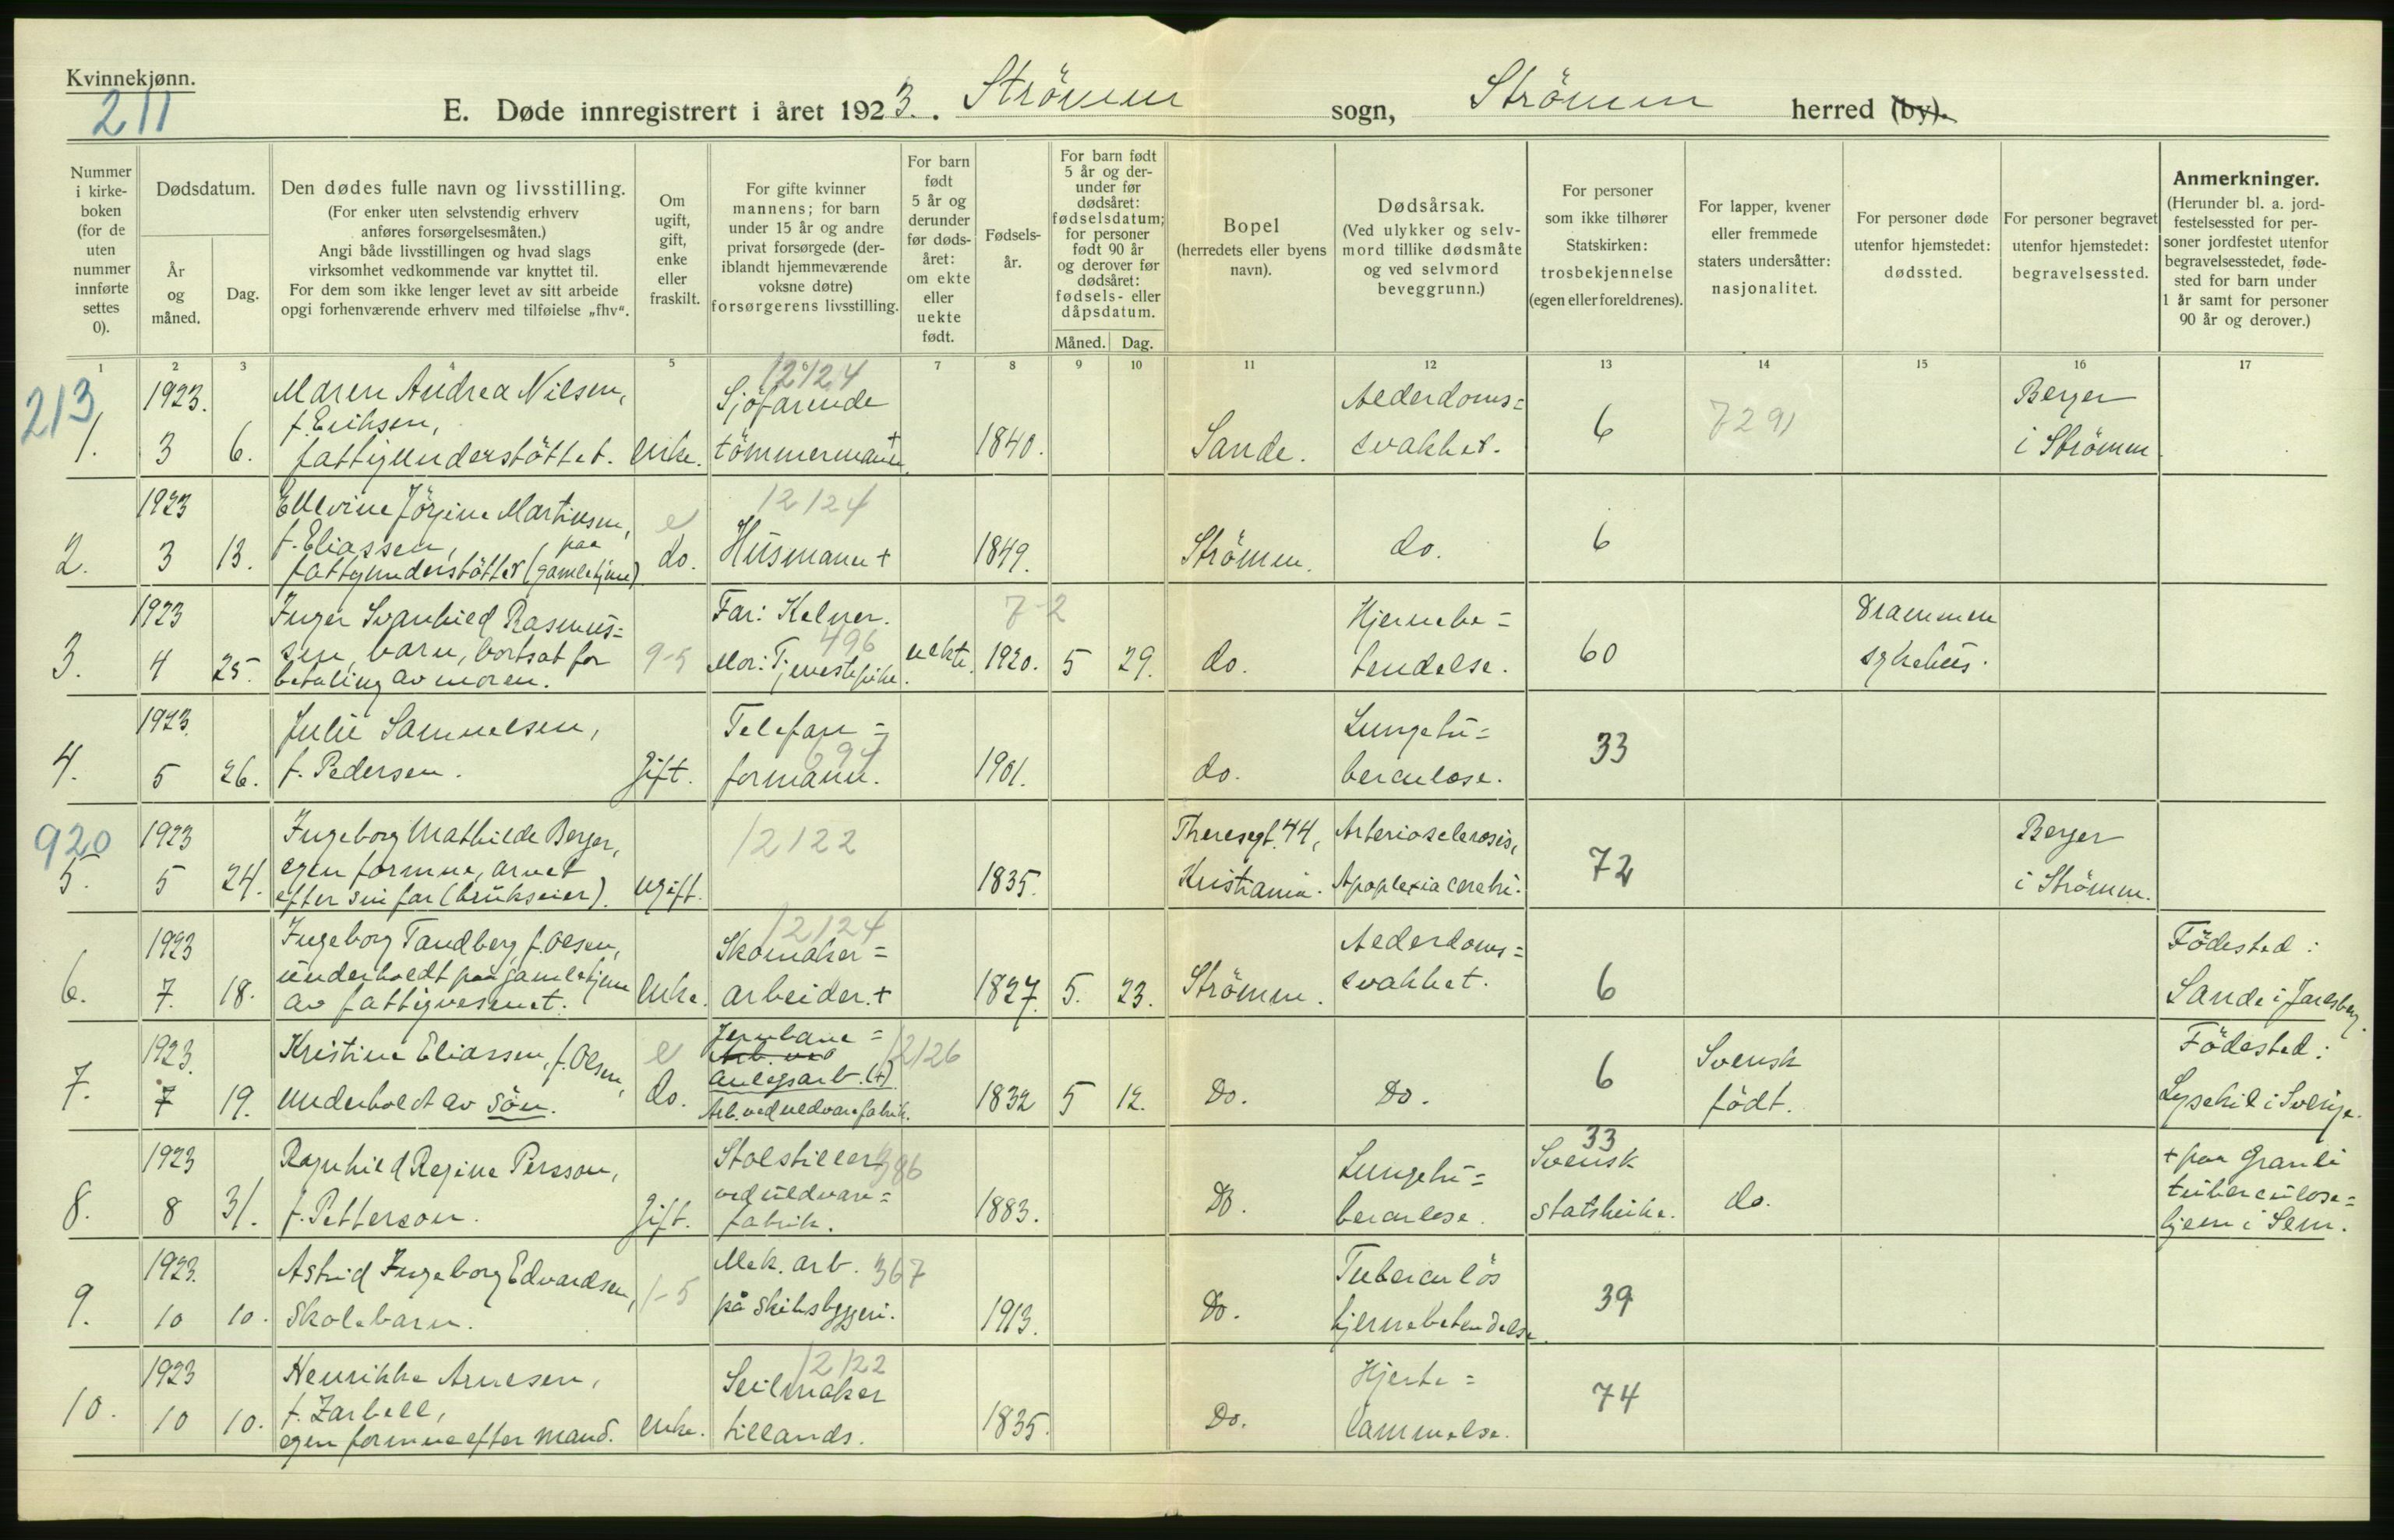 Kvinnekjønn.
211
E. Døde innregistrert i året 1923. Strömm sogn, Strömm herred (by).
Nummer i kirke-boken (for de uten nummer innførte settes 0).
Dødsdatum.
År og måned.
Dag.
Den dødes fulle navn og livsstilling.
(For enker uten selvstendig erhverv anføres forsørgelsesmåten.)
Angi både livsstillingen og hvad slags virksomhet vedkommende var knyttet til.
For dem som ikke lenger levet av sitt arbeide opgi forhenværende erhverv med tilføielse „fhv“.
Om ugift, gift, enke eller fraskilt.
For gifte kvinner mannens; for barn under 15 år og andre privat forsørgede (der-iblandt hjemmeværende voksne døtre) forsørgerens livsstilling.
For barn født 5 år og derunder før døds-året: om ekte eller uekte født.
Fødsels-år.
For barn født 5 år og der-under før dødsåret: fødselsdatum; for personer født 90 år og derover før dødsåret: fødsels- eller dåpsdatum.
Måned. Dag.
Bopel (herredets eller byens navn).
Dødsårsak.
(Ved ulykker og selv-mord tillike dødsmåte og ved selvmord beveggrunn.)
For personer som ikke tilhører Statskirken: trosbekjennelse (egen eller foreldrenes).
For lapper, kvener eller fremmede staters undersåtter: nasjonalitet.
For personer døde utenfor hjemstedet: dødssted.
For personer begravet utenfor hjemstedet: begravelsessted.
Anmerkninger.
(Herunder bl. a. jord-festelsessted for per-soner jordfestet utenfor begravelsesstedet, føde-sted for barn under 1 år samt for personer 90 år og derover.)
1 2 3 4 5 7 8 9 10 11 12 13 14 15 16 17
213
1. 1923. 3 6. Maren Andrea Nilsen, f. Eriksen, fattigunderstöttet. enke. 12124 Sjöfarende tömmermand +. 1840. Sande. Alderdoms= svakhet. 6 7291 Berger i Strömm.
2. 1923 3 13. Ellevine Jörgine Martinsen, f. Eliassen, fattigunderstöttet (paa gamlehjem) e do. 12124 Husmann + 1849. Strömm. do. 6
3. 1923 4 25. Inger Svanhild Rasmus= sen, barn, bortsat for betaling av moren. 9-5 Far: Kelner. 496 Mor: Tjenestepike. uekte. 7-2 1920. 5 29. do. Hjernebe= tendelse. 60 Drammen sykehus.
4. 1923. 5 26. Julie Samuelsen, f. Pedersen. Gift. Telefon= 694 formann. 1901. do. Lungetu= berculose. 33
920
5. 1923 5 24. Ingeborg Mathilde Berger, egen formue, arvet efter sin far (brukseier). ugift. 12122 1835. Theresegt. 44, Kristiania. Arteriosclerosis, Apoplexia cerebri. 72 Berger i Strömm.
6. 1923 7. 18. Ingeborg Tandberg, f. Olsen, underholdt på gamlehjem av fattigvesenet. Enke. 12124 Skomaker= arbeider. + 1827. 5. 23. Strömm. Alderdoms= svakhet. 6 Födested: Sande i Jarlsberg.
7. 1923. 7 19. Kristine Eliassen, f. Olsen, underholdt av sön. e do. Jernbane= Arb. ved anlegsarb. (+) Arb. ved uldvarefabrik. 12126 1832 5 12. Do. Do. 6 Svensk födt. Födested: Lysekil i Sverige.
8. 1923 8 31. Ragnhild Regine Persson, f. Petterson. Gift. Stolstiller 386 ved uldvare= fabrik. 1883. Do. Lungetu= berculose. 33 Svensk statskirke. do. + paa Granli tuberculose= hjem i Sem.
9. 1923. 10 10. Astrid Ingeborg Edvardsen, Skolebarn. 1-5 Mek. arb. 367 på skibsbyggeri. 1913. Do. Tuberculös hjernebetendelse. 39
10. 1923 10 10. Henrikke Arnesen, f. Zarbell, egen formue efter mand. Enke. 12122 Seilmaker tillands. 1835. Do. Hjerte= lammelse. 74